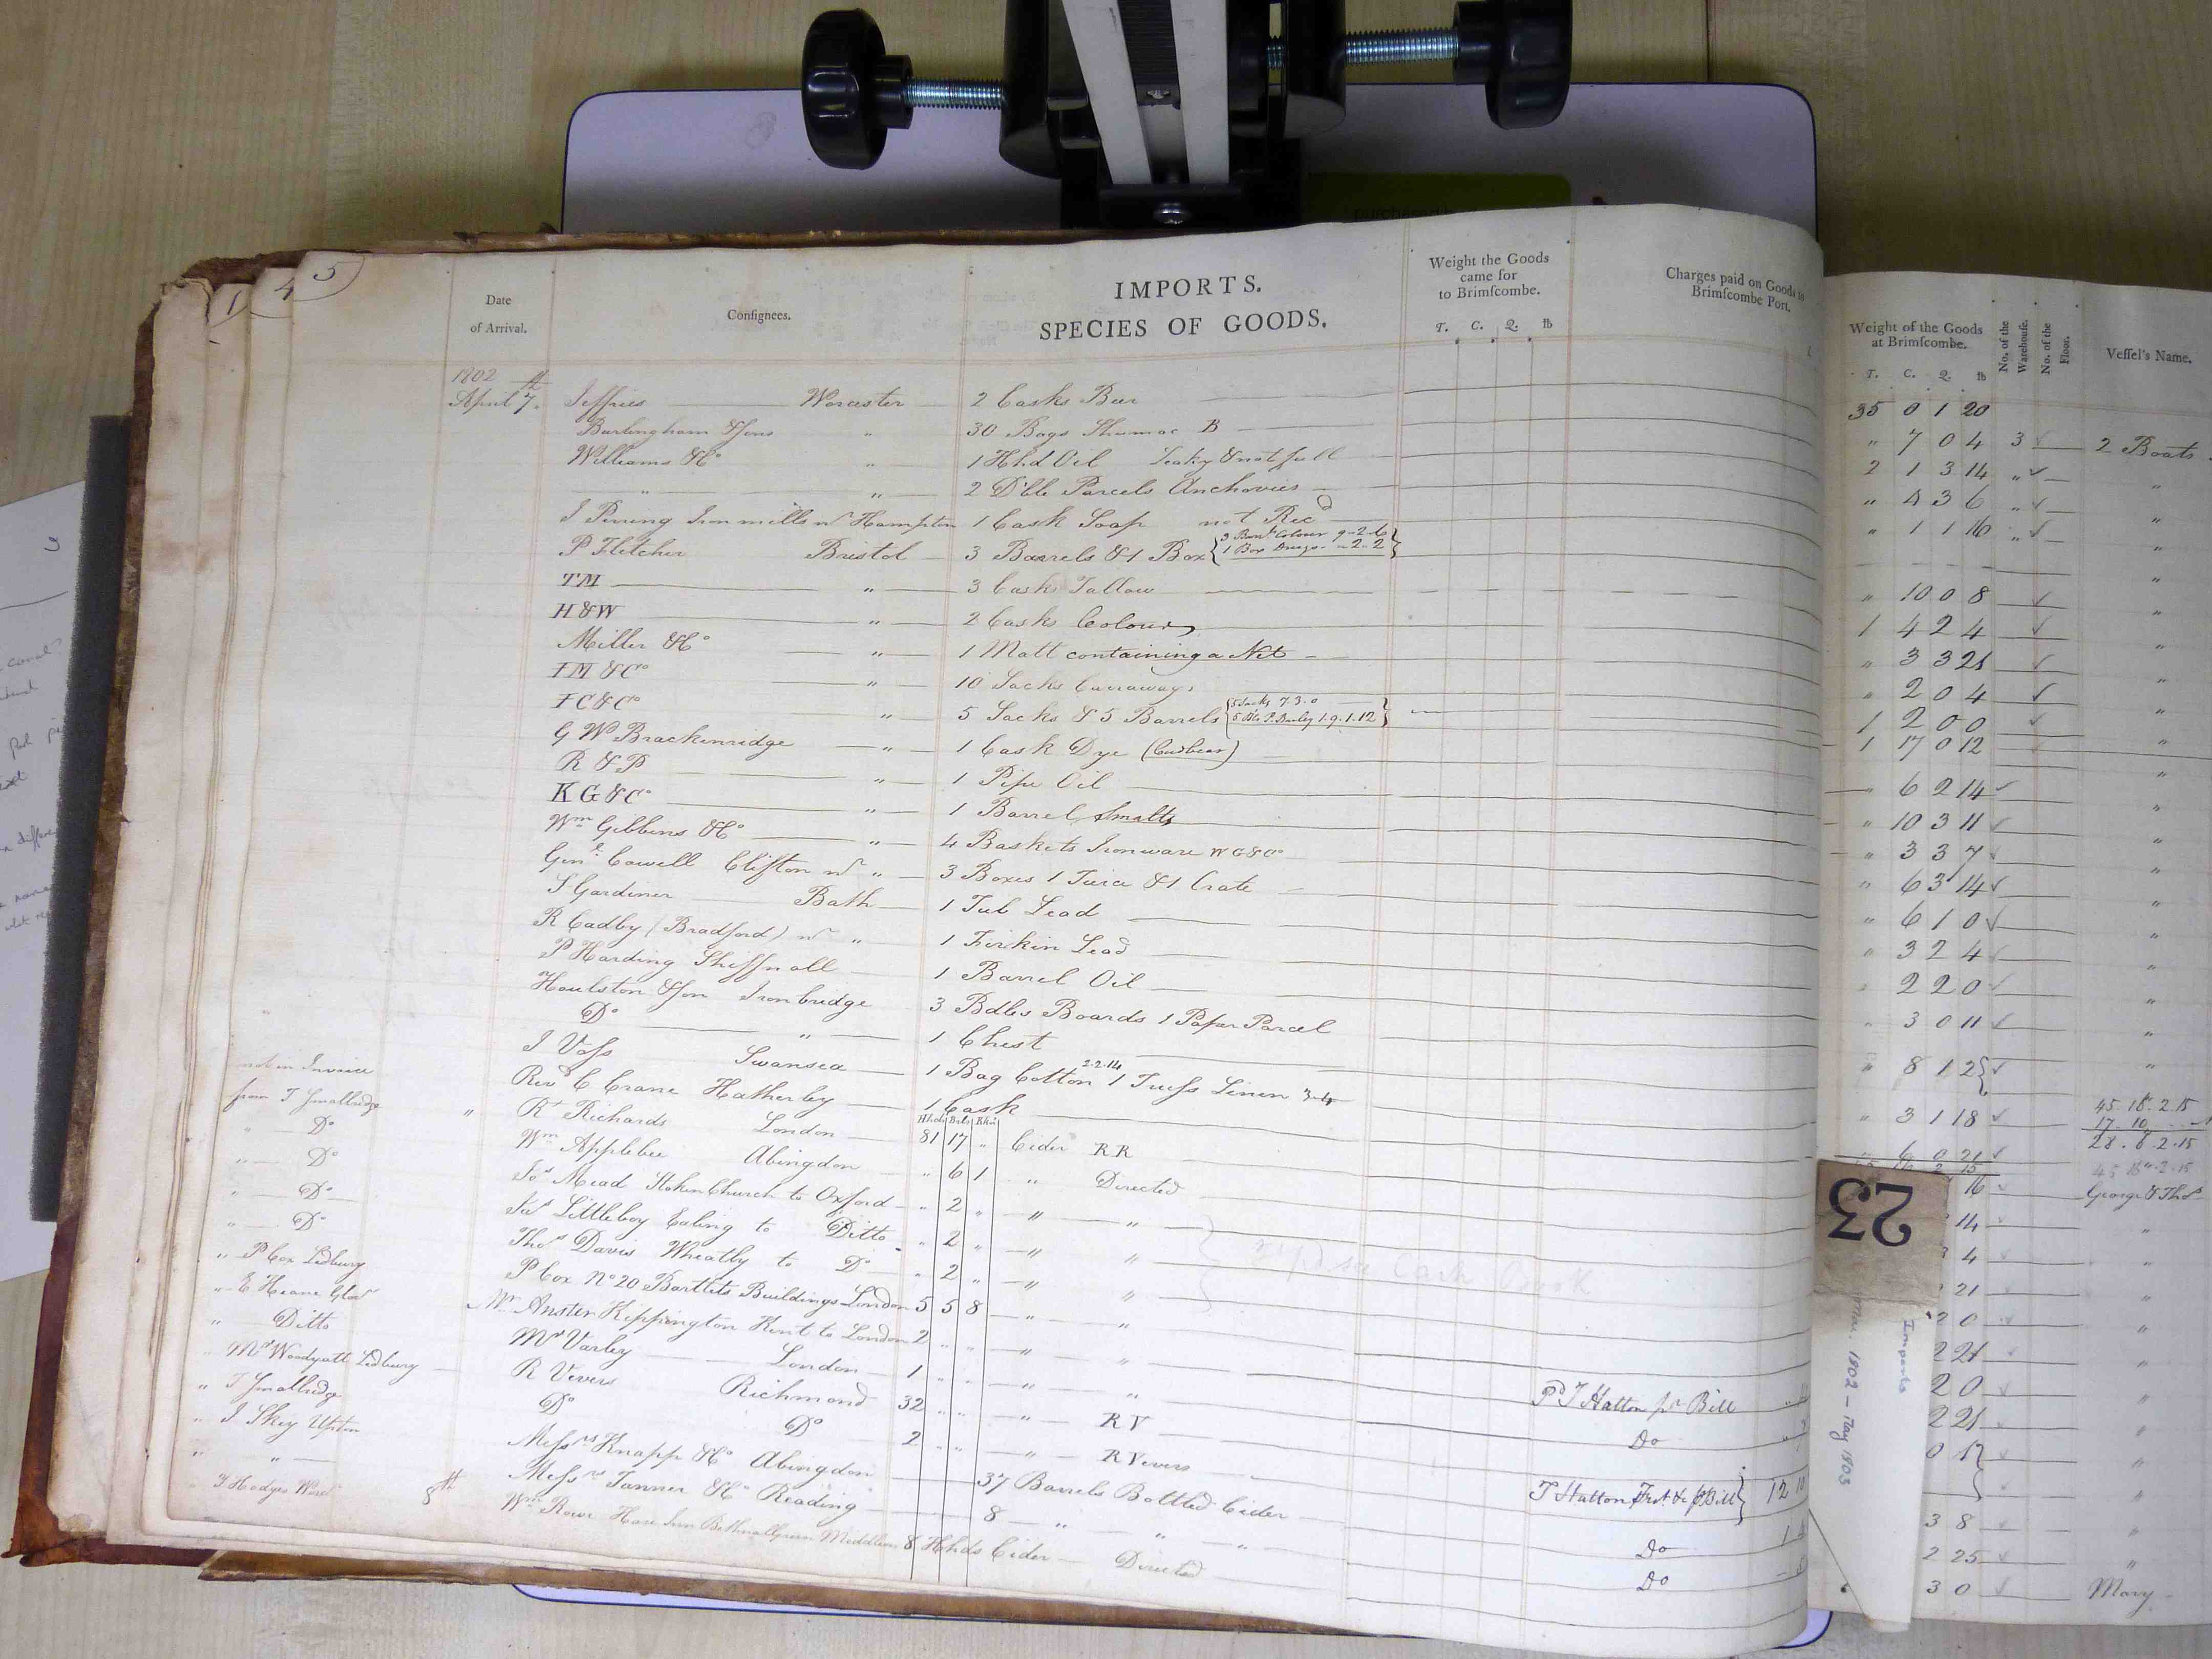 5
4
1
Date
of Arrival.
Consignees.
IMPORTS.
SPECIES OF GOODS.
Weight the Goods
came for
to Brimscombe.
T. C. Q. lb
Charges paid on Goods to
Brimscombe Port.
Weight of the Goods
at Brimscombe.
T. C. Q. lb
No. of the
Warehouse.
No. of the
Floor.
Vessel's Name.
1802
April 7th Jeffries Worcester 2 Casks Beer 35 0 1 20
Burlingham & Sons " 30 Bags Shumac B " 7 0 4 3 2 Boats
Williams & Co " 1 Hhd Oil Leaky & not full 2 1 3 14 "
" " 2 D'ble Parcels Anchovies " 4 3 6 "
J Perring Iron mills nr Hampton 1 Cask Soap not Recd " 1 1 16 "
P Fletcher Bristol 3 Barrels & 1 Box { 3 Barrls Colour 9-2-6 1 Box Drugs - " 2-2 }
TM " 3 Casks Tallow " 10 0 8 "
H&W " 2 Casks Colours 1 4 2 4 "
Miller & Co " 1 Matt containing a Net " 3 3 21 "
IM & Co " 10 Sacks Carraways " 2 0 4 "
FC & Co " 5 Sacks & 5 Barrels { 5 Sacks 7.3.0 5 Bls P. Barley 1.9.1.12 } 1 2 0 0 "
G W Brackenridge " 1 Cask Dye (Cudbear) 1 17 0 12
R & P " 1 Pipe Oil " 6 2 14 "
KG & Co " 1 Barrel Smalts " 10 3 11 "
Wm Gibbens & Co " 4 Baskets Ironware WG&Co " 3 3 7 "
Genl Cowell Clifton nr " 3 Boxes 1 & 1 Crate " 6 3 14 "
S Gardiner Bath 1 Tub Lead " 6 1 0 "
R Cadby (Bradford) nr " 1 Firkin Lead " 3 2 4 "
P Harding Sheffnall 1 Barrel Oil " 2 2 0 "
Houlston & Son Ironbridge 3 Bdles Boards 1 Paper Parcel " 3 0 11 "
Do " 1 Chest " 8 1 2 "
J Voss Swansea 1 Bag Cotton 2-2-14 1 Truss Linen
not in Invoice Revd C Crane Hatherley 1 Cask " 3 1 18
45.16.2.15
17.10
28.6.2.15
Hhds Bals
from T Smallridge " Rt Richards London 81 17 " Cider RR 16 George & Thos
" Do Wm Applebee Abingdon " 6 1 " Directed 14 "
" Do Jos Mead Stoken Church to Oxford " 2 " " " 4 "
" Do Jas Littleboy Ealing to Ditto " 2 " " " 21 "
" Do Thos Davis Wheatly to Do " 2 " " " 2 0 "
" P Cox Ledbury P Cox No 20 Bartlets Buildings London 5 5 8 " " 2 21 "
" E Heane Glosr Mr Anster Kippington Kent to London 2 " " " " 2 0 "
" Ditto Mr Varley London 1 " " " " 2 21 "
" Mr Woodyatt Ledbury R Vevers Richmond 32 " " " RV Pd T Hatton pr Bill
" T Smallridge Do Do 2 " " " R Vevers Do
" J Skey Upton Messrs Knapp & Co Abingdon 37 Barrels Bottled Cider T Hatton Frt &c pr Bill 12 10
" " Messrs Tanner & Co Reading 8 " " " Do 3 8 "
T Hodges Worc 8th Wm Rowe Hare Inn Bethnallgreen Middlex 8 Hhds Cider Directed Do 2 25 "
3 0 Mary
pd see Cash Book
23
Imports
1802 – May 1803